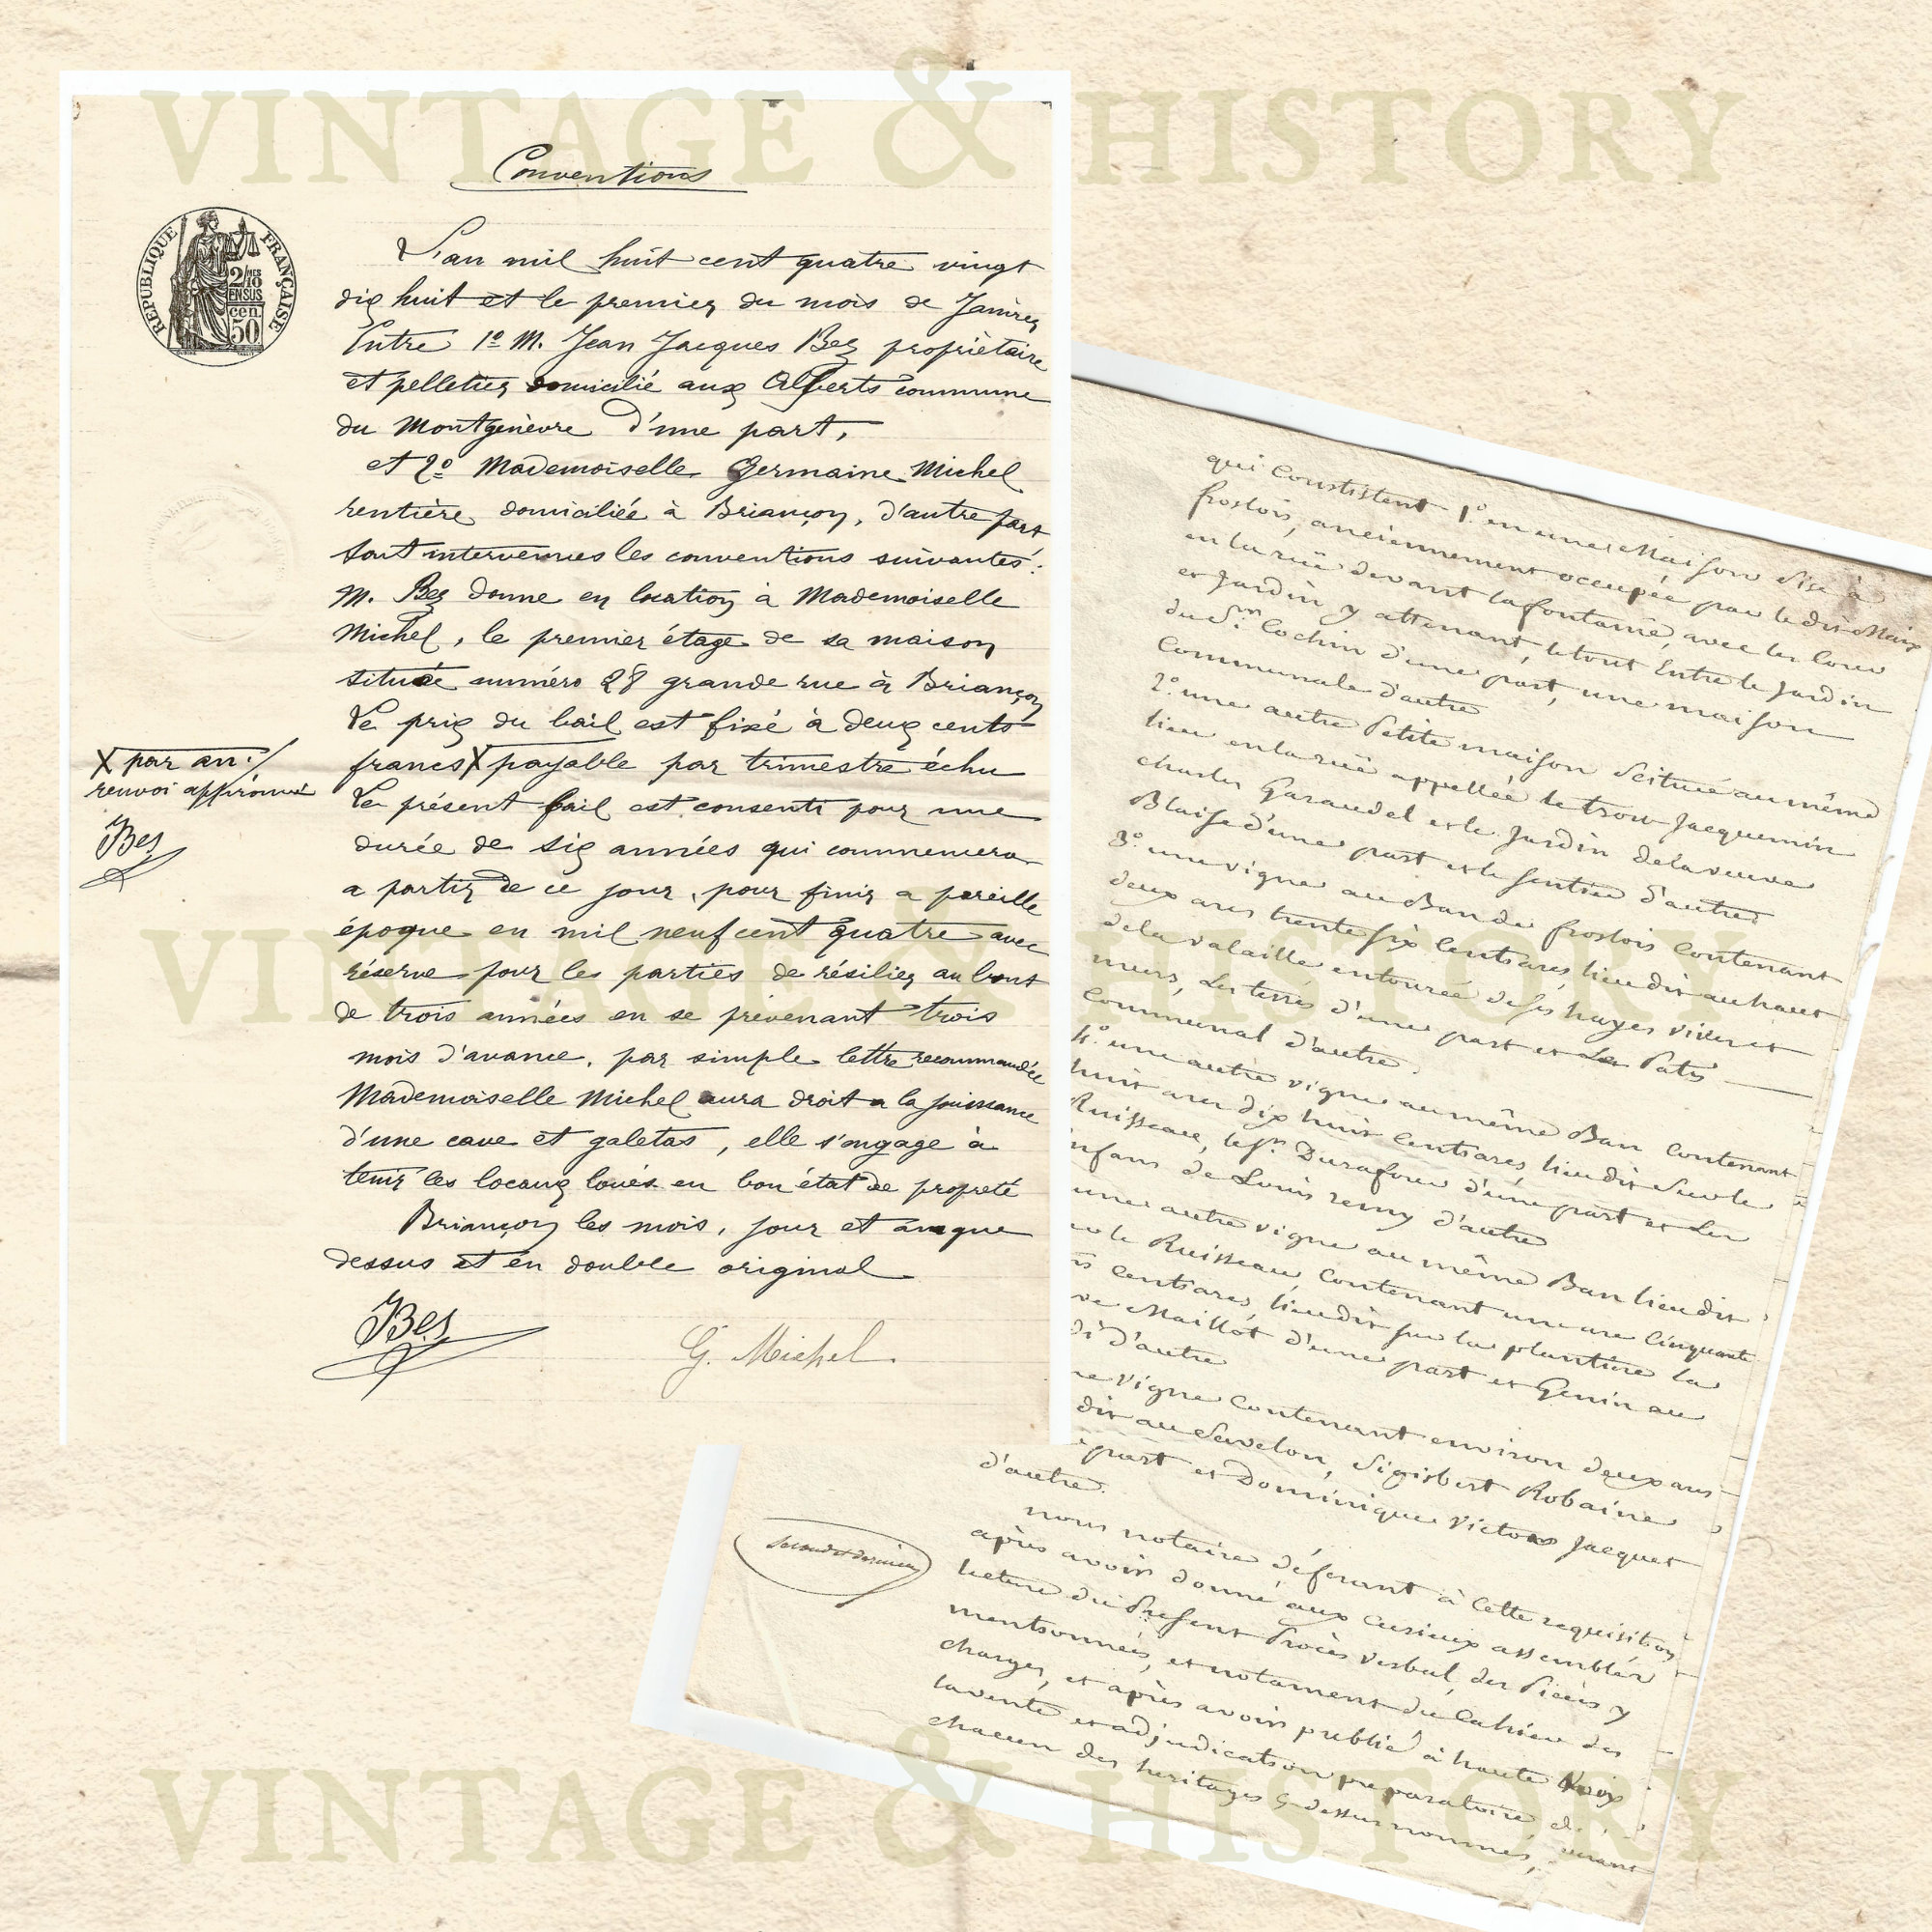 VINTAGE & HISTORY
Conventions
RÉPUBLIQUE FRANÇAISE
2/10MES
EN SUS
cen.
50
L'an mil huit cent quatre vingt
dix huit et le premier du mois de Janvier
Entre 1º M. Jean Jacques Bez propriétaire
et pelletier domicilié aux Alberts commune
du Montgenèvre d'une part,
et 2º Mademoiselle Germaine Michel
rentière domiciliée à Briançon, d'autre part
sont intervenues les conventions suivantes:
M. Bez donne en location à Mademoiselle
Michel, le premier étage de sa maison
située numéro 28 grande rue à Briançon
Le prix du bail est fixé à deux cents
francs X payable par trimestre échu
X par an./
renvoi approuvé
Bez
Le présent bail est consenti pour une
durée de six années qui commencera
a partir de ce jour, pour finir a pareille
époque en mil neuf cent quatre avec
réserve pour les parties de résilier au bout
de trois années en se prévenant trois
mois d'avance, par simple lettre recommandée
Mademoiselle Michel aura droit a la jouissance
d'une cave et galetas, elle s'engage à
tenir les locaux loués en bon état de propreté
Briançon les mois, jour et an que
dessus et en double original
Bez
G. Michel.
qui Consistent 1º en une Maison Sise à
froslois, anciennement occupée par le dit
en la ruë devant la fontaine, avec les
et Jardin y attenant, le tout Entre le Jardin
du Sr. Cochin d'une part, une maison
Communale d'autre
2º une autre Petite maison Scituée au même
lieu en la ruë appellée le trou Jacquemin
charles Garaudel et le Jardin de la veuve
Blaise d'une part et le sentier d'autre
3º une vigne au Ban de froslois Contenant
deux ares trente six Centiares, lieu dit au haut
de la valaille entourée de ses hayes vives et
murs, Les terres d'une part et Le Patis
Communal d'autre.
4º une autre vigne au même Ban Contenant
huit ares dix huit Centiares lieu dit Sur le
Ruisseau, le Sr. d'une part et Les
enfans de Louis remy d'autre
une autre vigne au même Ban lieu dit
le Ruisseau, Contenant une are Cinquante
Centiares, lieu dit sur la plantiere la
Maillot d'une part et Genin au
d'autre
vigne Contenant environ deux ares
dit au Savelon, Sigisbert Robaine
part et Dominique Victor Jacquet
d'autre.
nous notaire déférant à Cette requisition
second et dernier
après avoir donné aux Curieux assemblés
lecture du Présent Procès Verbal, des Pièces y
mentionnées, et notament du Cahier des
charges, et après avoir publié à haute Voix
la vente et adjudication préparatoire de
chacun des heritages cy dessus nommés,
VINTAGE & HISTORY
VINTAGE & HISTORY